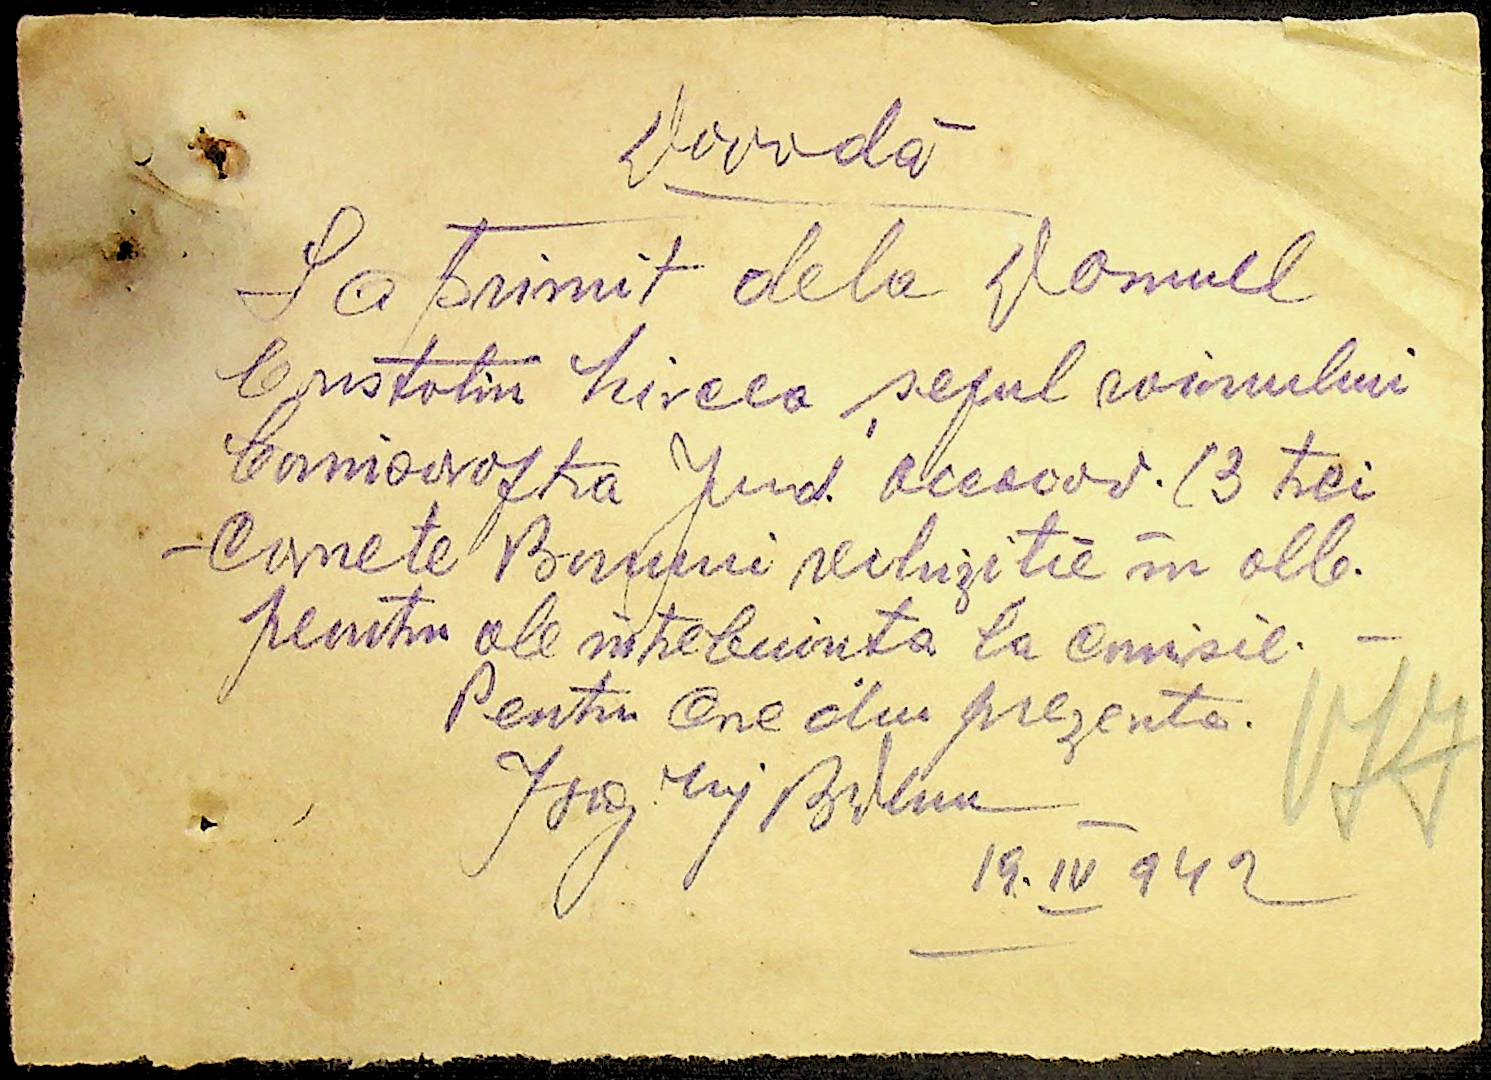 Dovodă
Sa primit dela Domnul
Cristolin Mircea, șeful raionului
Comisarofka Jud. (3 trei
-Carnete Bonuri rechiziție in alb.
pentru ale intrebuința la comisie. -
Pentru care dau prezenta.
19. IV 942